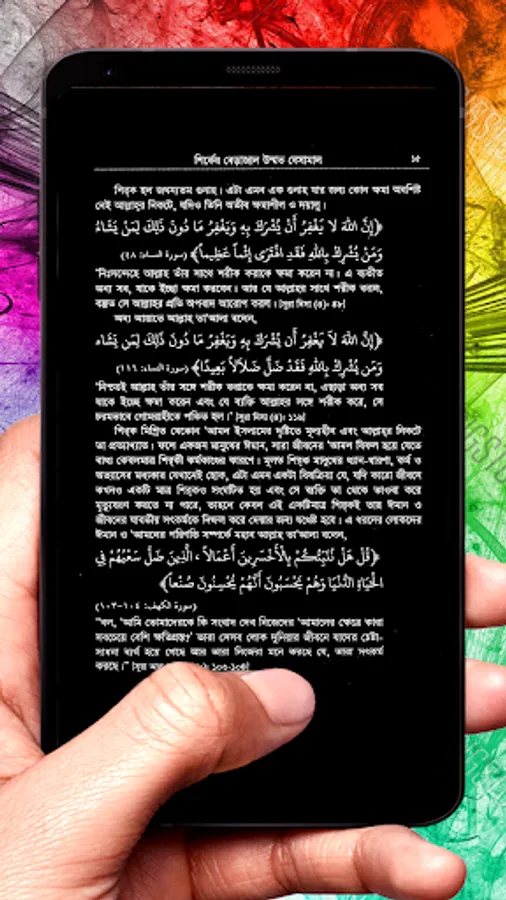 শির্কের বেড়াজাল উম্মত বেসামাল ১৫
শিরক হল জঘন্যতম গুনাহ। এটা এমন এক গুনাহ যার জন্য কোন ক্ষমা অবশিষ্ট
নেই আল্লাহর নিকটে, যদিও তিনি অতীব ক্ষমাশীল ও দয়ালু।
﴿إِنَّ اللهَ لاَ يَغْفِرُ أَنْ يُشْرَكَ بِهِ وَيَغْفِرُ مَا دُونَ ذَلِكَ لِمَنْ يَشَاءُ
وَمَنْ يُشْرِكْ بِاللهِ فَقَدِ افْتَرَى إِثْماً عَظِيماً﴾ (سورة النساء: ٤٨)
‘নিঃসন্দেহে আল্লাহ তাঁর সাথে শরীক করাকে ক্ষমা করেন না। এ ব্যতীত
অন্য সব, যাকে ইচ্ছা ক্ষমা করবেন। আর যে আল্লাহর সাথে শরীক করল,
বস্তুত সে আল্লাহর প্রতি অপবাদ আরোপ করল। [সূরা নিসা (৪): ৪৮]
অন্য আয়াতে আল্লাহ তা'আলা বলেন,
﴿إِنَّ اللهَ لاَ يَغْفِرُ أَنْ يُشْرَكَ بِهِ وَيَغْفِرُ مَا دُونَ ذَلِكَ لِمَنْ يَشَاء
وَمَن يُشْرِكْ بِاللهِ فَقَدْ ضَلَّ ضَلاَلاً بَعِيدًا﴾ (سورة النساء: ١١٦)
‘নিশ্চয়ই আল্লাহ তাঁর সঙ্গে শরীক করাকে ক্ষমা করেন না, এছাড়া অন্য সব
যাকে ইচ্ছে ক্ষমা করেন এবং যে ব্যক্তি আল্লাহর সঙ্গে শরীক করে, সে
চরমভাবে গোমরাহীতে পতিত হল।’ [সূরা নিসা (৪): ১১৬]
শিরক মিশ্রিত যেকোন ‘আমল ইসলামের দৃষ্টিতে মূল্যহীন এবং আল্লাহর নিকটে
তা প্রত্যাখ্যাত। ফলে একজন মানুষের ঈমান, সারা জীবনের ‘আমল বিফল হয়ে যেতে
বাধ্য কেবলমাত্র শির্কী কর্মকাণ্ডের কারণে। মূলত শিরক মানুষের ধ্যান-ধারণা, কর্ম ও
অভ্যাসের মধ্যকার যেখানেই হোক, এটা এমন একটা বিষক্রিয়া যে, যদি কারো জীবনে
কখনও একটি মাত্র শিরকও সংঘটিত হয় এবং সে ব্যক্তি তা থেকে তাওবা করে
মৃত্যুবরণ করতে না পারে, তাহলে কেবল এই একটিমাত্র শিরকই তার ঈমান ও
জীবনের যাবতীয় সৎকর্মকে নিষ্ফল করে দেয়ার জন্য যথেষ্ট হবে। এ ধরনের লোকদের
ঈমান ও ‘আমলের পরিণতি সম্পর্কে মহান আল্লাহ তা'আলা বলেন,
﴿قُلْ هَلْ نُنَبِّئُكُمْ بِالْأَخْسَرِينَ أَعْمَالاً - الَّذِينَ ضَلَّ سَعْيُهُمْ فِي
الْحَيَاةِ الدُّنْيَا وَهُمْ يَحْسَبُونَ أَنَّهُمْ يُحْسِنُونَ صُنْعاً﴾
(سورة الكهف: ١٠٤-١٠٣)
“বল, ‘আমি তোমাদেরকে কি সংবাদ দেব নিজেদের ‘আমালের ক্ষেত্রে কারা
সবচেয়ে বেশি ক্ষতিগ্রস্ত?’ তারা সেসব লোক দুনিয়ার জীবনে যাদের চেষ্টা-
সাধনা ব্যর্থ হয়ে গেছে আর তারা নিজেরা মনে করছে যে, তারা সৎকর্ম
করছে।” [সূরা ১০৩-১০৪]